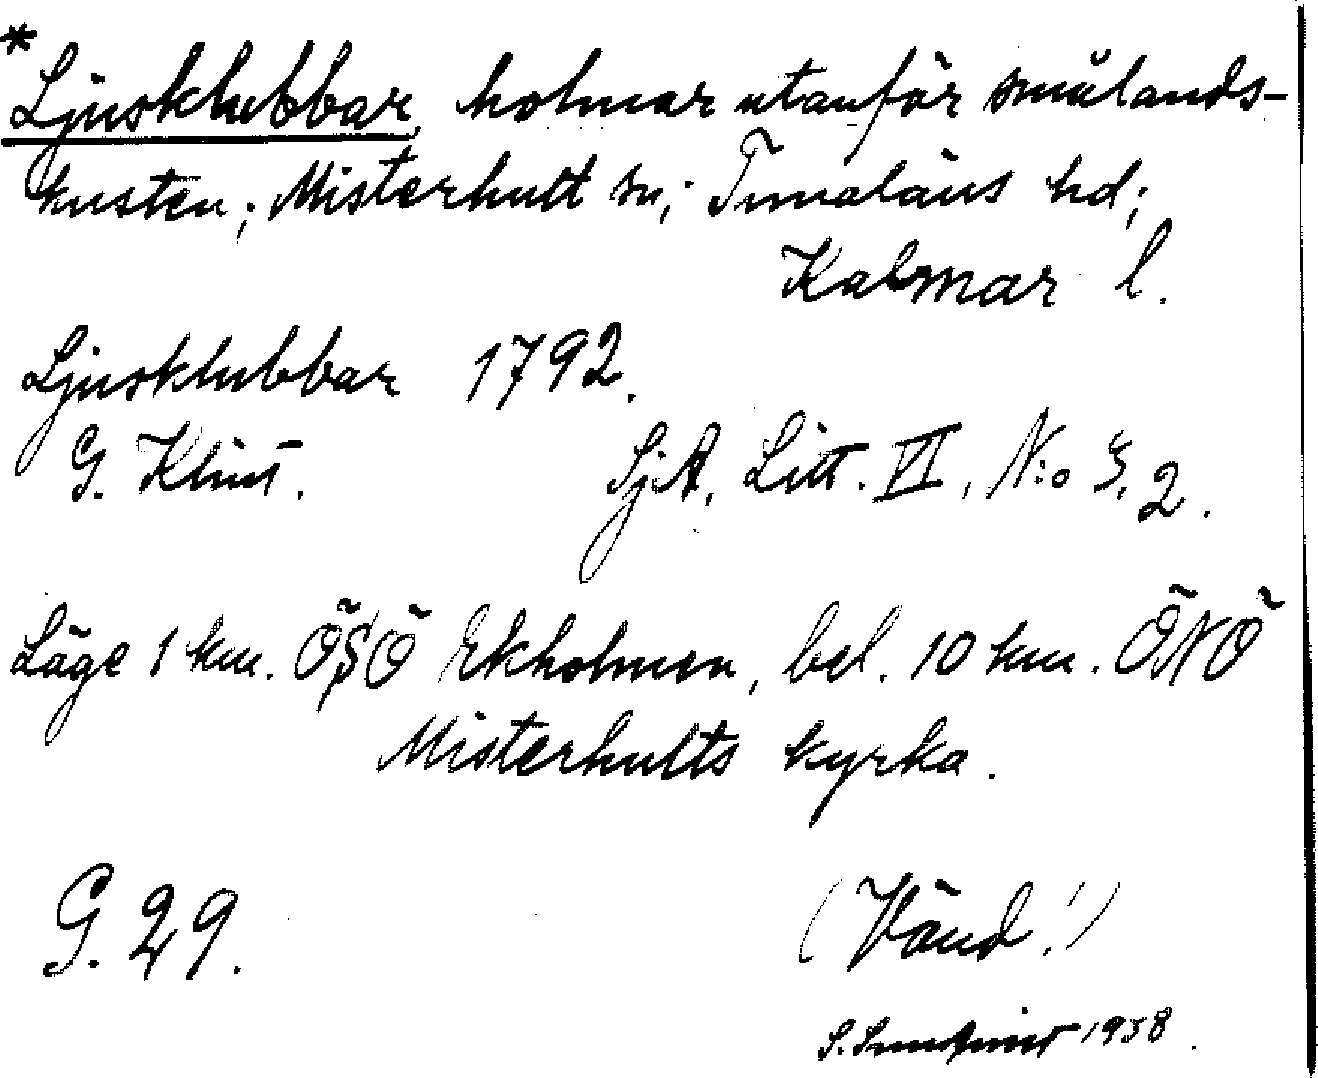 *Ljusklubbar, holmar utanför smålands-
kusten; Misterhult sn; Tunaläns hd;
Kalmar l.
Ljusklubbar 1792.
G. Klint. SjA, Litt. VI, N:o 3, 2.
Läge 1 km. ÖSÖ Ekholmen, bel. 10 km. ÖNÖ
Misterhults kyrka.
G. 29. (Vänd!)
S. Sundqvist 1938.